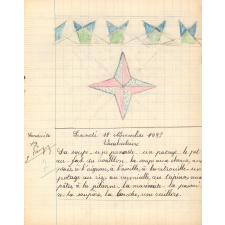 Samedi 18 Décembre 1897
Vocabulaire
Du soupe, une panade, un potage, le pot
au feu, du bouillon, la soupe aux choux, aux
pois, à l'oignon, à l'oseille, à la citrouille, un
potage au riz, au vermicelle, au tapioca, aux
pâtes, à la julienne, la marmite, la
la soupière, la louche, une cuillère.